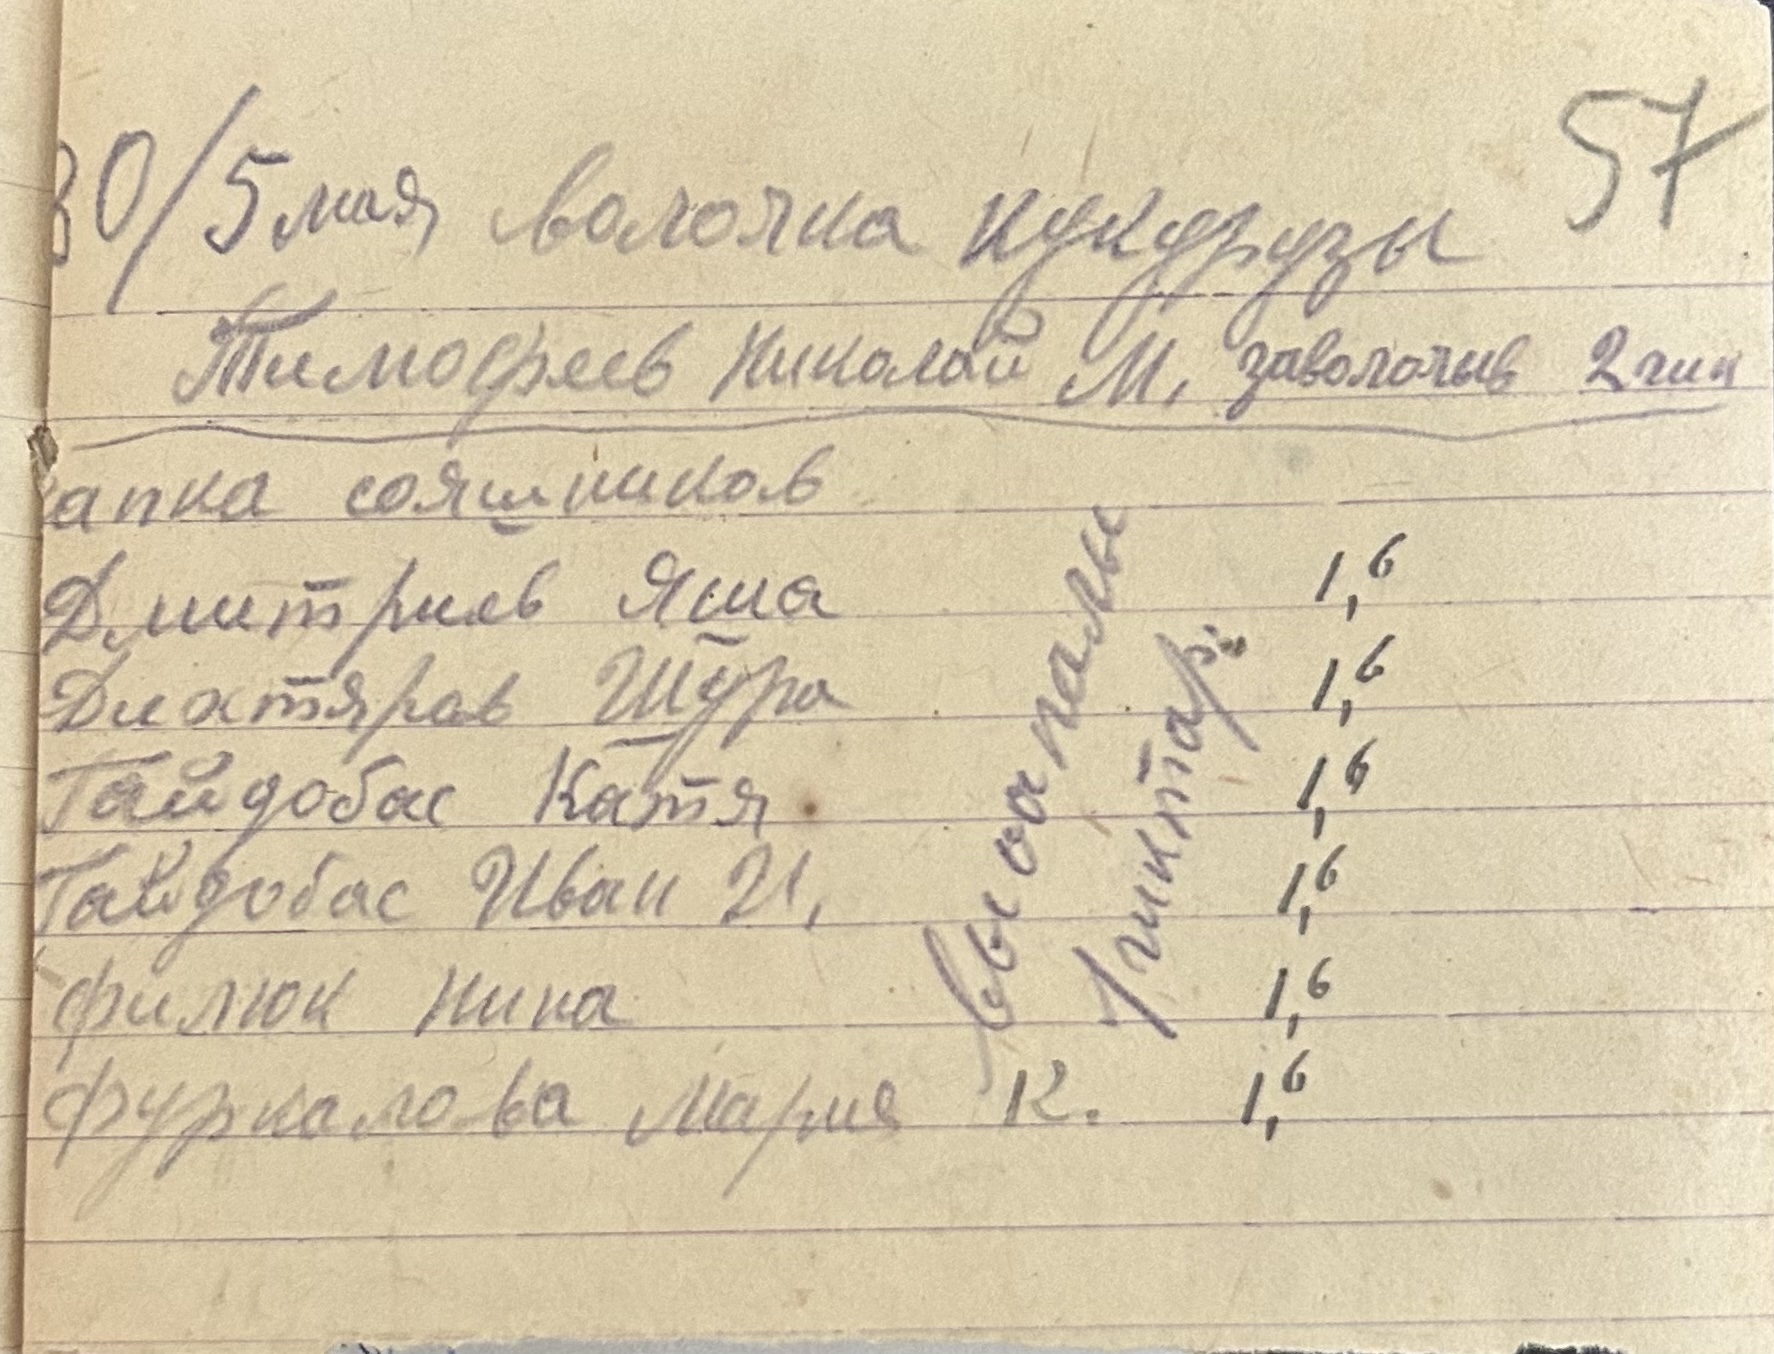 57
30/5 мая волочка кукурузы
Тимофеев Николай М. заволочыв 2 гик
сапка сояшников
Дмитриев Яша 1,6
Дихтяров Шура 1,6
Гайдобас Катя 1,6
Гайдобас Иван И. 1,6
Филюк Нина 1,6
Фуркалова Мария К. 1,6
высапалы
1 гиктар.